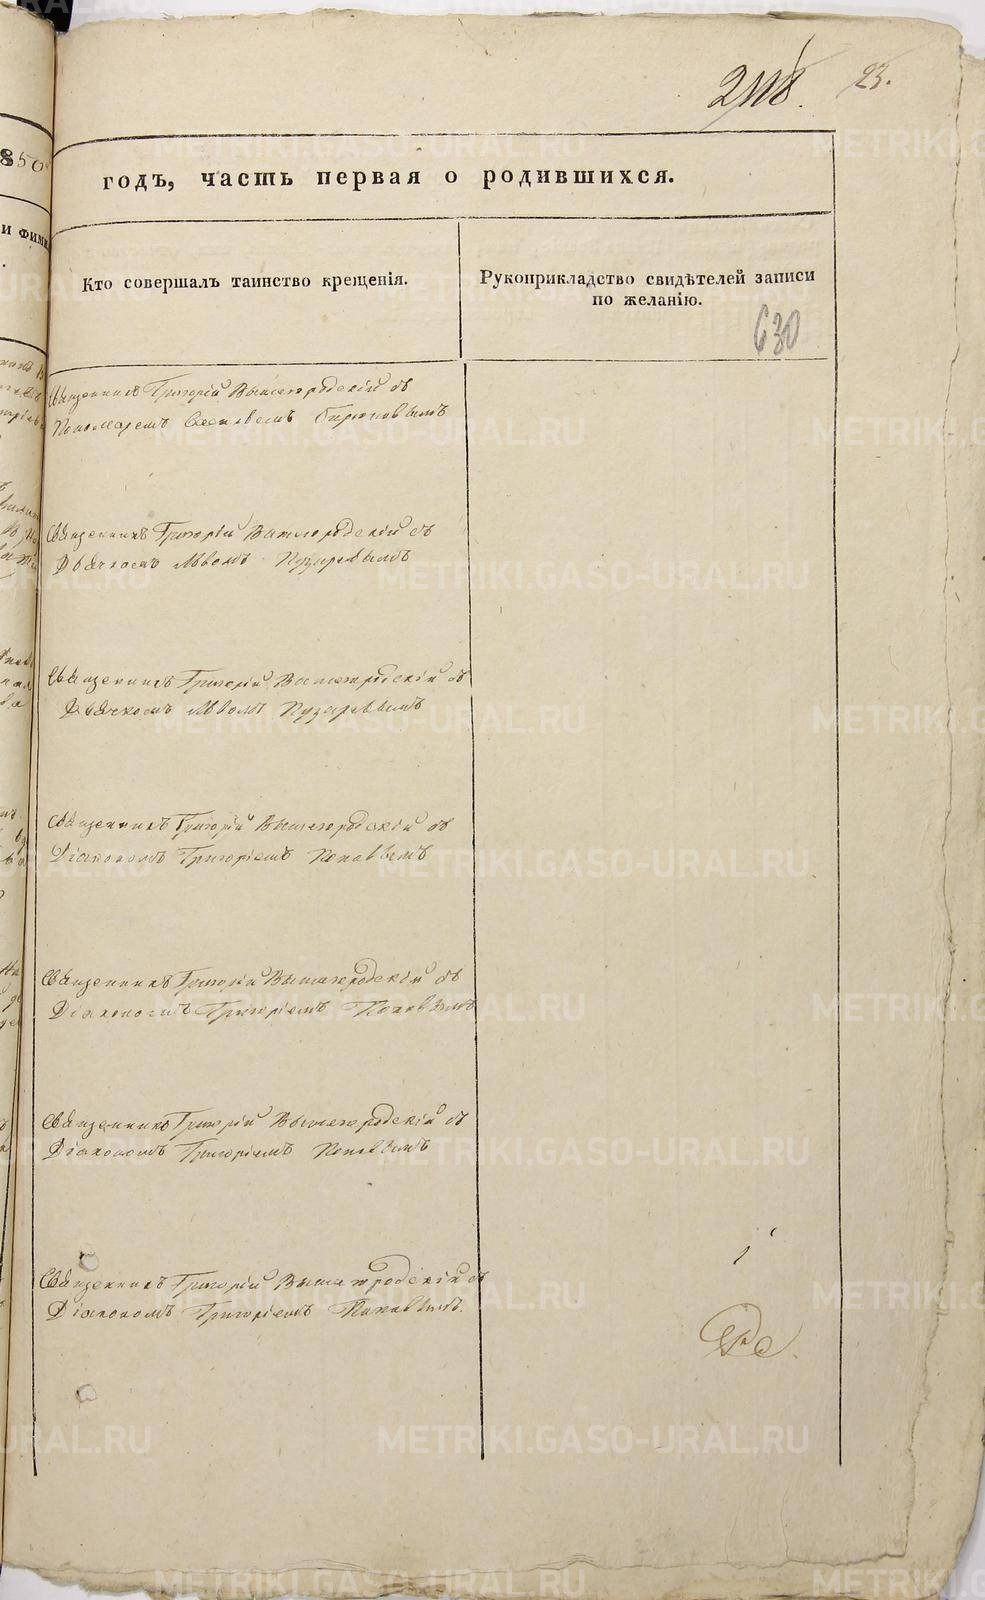 23.
850
годъ, часть первая о родившихся.
Кто совершалъ таинство крещенія.
Рукоприкладство свидѣтелей записи
по желанію.
630
Священникъ Григорій Вышегородскій съ
Пономаремъ Василіемъ Бирюковымъ
Священникъ Григорій Вышегородскій съ
Дьячкомъ Львомъ Пузыревымъ
Священникъ Григорій Вышегородскій съ
Дьячкомъ Львомъ Пузыревымъ
Священникъ Григорій Вышегородскій съ
Діакономъ Григоріемъ Поповымъ
Священникъ Григорій Вышегородскій съ
Діакономъ Григоріемъ Поповымъ
Священникъ Григорій Вышегородскій съ
Діакономъ Григоріемъ Поповымъ
Священникъ Григорій Вышегородскій съ
Діакономъ Григоріемъ Поповымъ.
METRIKI.GASO-URAL.RU